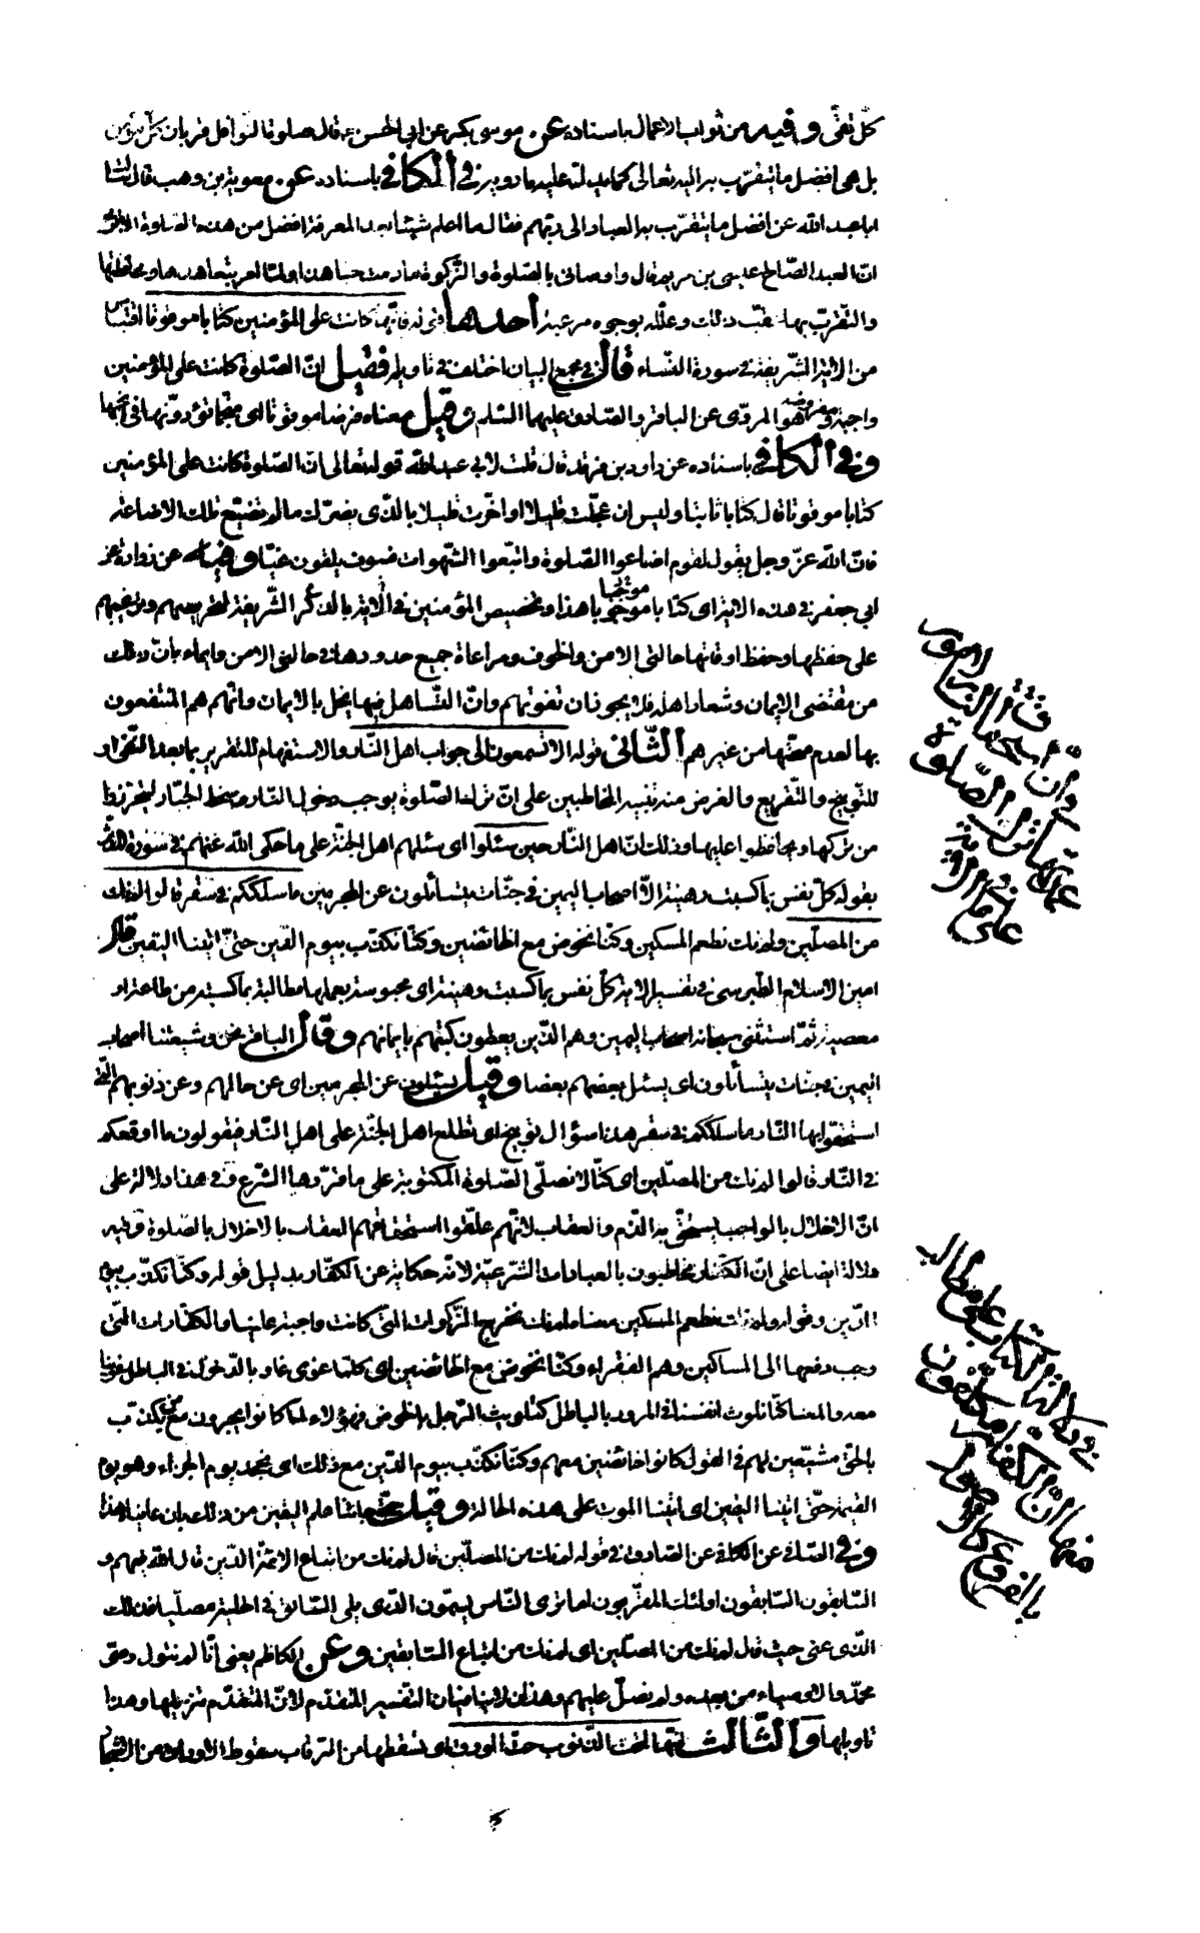 كلّ تقىّ وفيه من ثواب الاعمال باسناده عن موسى بكر عن ابى الحسن ع قال صلوة النوافل قربان كلّ مؤمن
بل هى افضل ما يتقرّب به اليه تعالى كما يدلّ عليه ما رويه فى الكافى باسناده عن معوية بن وهب قال سئلت
ابا عبد الله عن افضل ما يتقرّب به العباد الى ربّهم فقال ما اعلم شيئا بعد المعرفة افضل من هذه الصّلوة الا ترى
انّ العبد الصّالح عيسى بن مريم قال واوصانى بالصّلوة والزّكوة ما دمت حيا هذا ولمّا امر بتعاهدها ومحافظتها
والتقرّب بها عقّب ذلك وعلّله بوجوه مرغّبة احدها قوله فانّها كانت على المؤمنين كتابا موقوتا اقتباس
من الاية الشّريفة فى سورة النّساء قال فى مجمع البيان اختلف فى تاويله فقيل انّ الصّلوة كانت على المؤمنين
واجبة مفروضة وهو المروىّ عن الباقر والصّادق عليهما السّلم وقيل معناه فرضا موقوتا اى منجّما تؤدّونها فى انجمها
وفى الكافى باسناده عن داود بن فرقد قال قلت لابى عبد الله قوله تعالى انّ الصّلوة كانت على المؤمنين
كتابا موقوتا قال كتابا ثابتا وليس ان عجّلت قليلا او اخّرت قليلا بالّذى يضرّك ما لم تضيّع تلك الاضاعة
فانّ الله عزّ وجل يقول لقوم اضاعوا الصّلوة واتّبعوا الشّهوات فسوف يلقون غيّا وفيه عن زرارة عن
ابى جعفر فى هذه الاية اى كتابا موجبا هذا وتخصيص المؤمنين فى الاية بالذّكر الشّريفة لتحريصهم وترغيبهم
على حفظها وحفظ اوقاتها حالتى الامن والخوف ومراعاة جميع حدودها فى حالتى الامن وايماء بانّ ذلك
من مقتضى الايمان وشعار اهله فلا يجوز ان تفوتهم وانّ التّساهل فيها يخلّ بالايمان وانّهم هم المنتفعون
بها لعدم صحّتها من غيرهم الثّانى قوله الا تسمعون الى جواب اهل النّار والاستفهام للتقرير بما بعد النّفى او
للتّوبيخ والتّقريع والغرض منه تنبيه المخاطبين على انّ ترك الصّلوة يوجب دخول النّار وسخط الجبّار ليتحرّزوا
من تركها ويحافظوا عليها وذلك انّ اهل النّار حين سئلوا اى سئلهم اهل الجنّة على ما حكى الله عنهم فى سورة المدّثّر
بقوله كلّ نفس بما كسبت رهينة الّا اصحاب اليمين فى جنّات يتسائلون عن المجرمين ما سلككم فى سقر قالوا لم نك
من المصلّين ولم نك نطعم المسكين وكنّا نخوض مع الخائضين وكنّا نكذّب بيوم الدّين حتّى اتينا اليقين قال
امين الاسلام الطّبرسى فى تفسير الاية كلّ نفس بما كسبت رهينة اى محبوسة بعملها مطالبة بما كسبته من طاعة او
معصية ثمّ استثنى سبحانه اصحاب اليمين وهم الّذين يعطون كتبهم بايمانهم وقال الباقر نحن وشيعتنا اصحاب
اليمين فى جنّات يتسائلون اى يسئل بعضهم بعضا وقيل يسئلون عن المجرمين اى عن حالهم وعن ذنوبهم الّتى
استحقّوا بها النّار ما سلككم فى سقر هذا سؤال توبيخ اى تطلع اهل الجنّة على اهل النّار فيقولون ما اوقعكم
فى النّار قالوا لم نك من المصلّين اى كنّا لا نصلّى الصّلوة المكتوبة على ما قرّرها الشّرع وفى هذا دلالة على
انّ الاخلال بالواجب يستحقّ به الذّم والعقاب لانّهم علّقوا استحقاقهم العقاب بالاخلال بالصّلوة وفيه
دلالة ايضا على انّ الكفّار مخاطبون بالعبادات الشّرعيّة لانّه حكاية عن الكفّار بدليل قوله وكنّا نكذّب بيوم
الدّين وقوله ولم نك نطعم المسكين معناه لم نك نخرج الزّكوات الّتى كانت واجبة علينا والكفّارات الّتى
وجب دفعها الى المساكين وهم الفقراء وكنّا نخوض مع الخائضين اى كلّما غوى غاو بالدّخول فى الباطل غوينا
معه والمعنا كنّا نلوث انفسنا فى المرور بالباطل كتلويث الرّجل بالخوض فهؤلاء لمّا كانوا يجرون مع من يكذّب
بالحقّ مشيّعين لهم فى القول كانوا خائضين معهم وكنّا نكذّب بيوم الدّين مع ذلك اى نجحد يوم الجزاء وهو يوم
القيمة حتّى اتينا اليقين اى اتينا الموت على هذه الحالة وقيل حتّى جائنا علم اليقين من ذلك بان عاينّاه هذا
وفى الصّافى عن الكافى عن الصّادق فى قوله لم نك من المصلّين قال لم نك من اتباع الائمّة الّذين قال الله فيهم و
السّابقون السّابقون اولئك المقرّبون اما ترى النّاس يسمّون الّذى يلى السّابق فى الحلبة مصلّيا فذلك
الّذى عنى حيث قال لم نك من المصلّين اى لم نك من اتباع السّابقين وعن الكاظم يعنى انّا لم نتولّ وصىّ
محمّد والاوصياء من بعده ولم نصلّ عليهم وهذان لا ينافيان التفسير المتقدّم لانّ المتقدّم تنزيلها وهذا
تاويلها والثّالث انّها لتحتّ الذّنوب حتّ الورق اى تسقطها من الرّقاب سقوط الاوراق من الاشجار
فى دلالة الكتاب على مطالبة
منها انّ الكفّار مكلّفون
بالفروع كالاصول